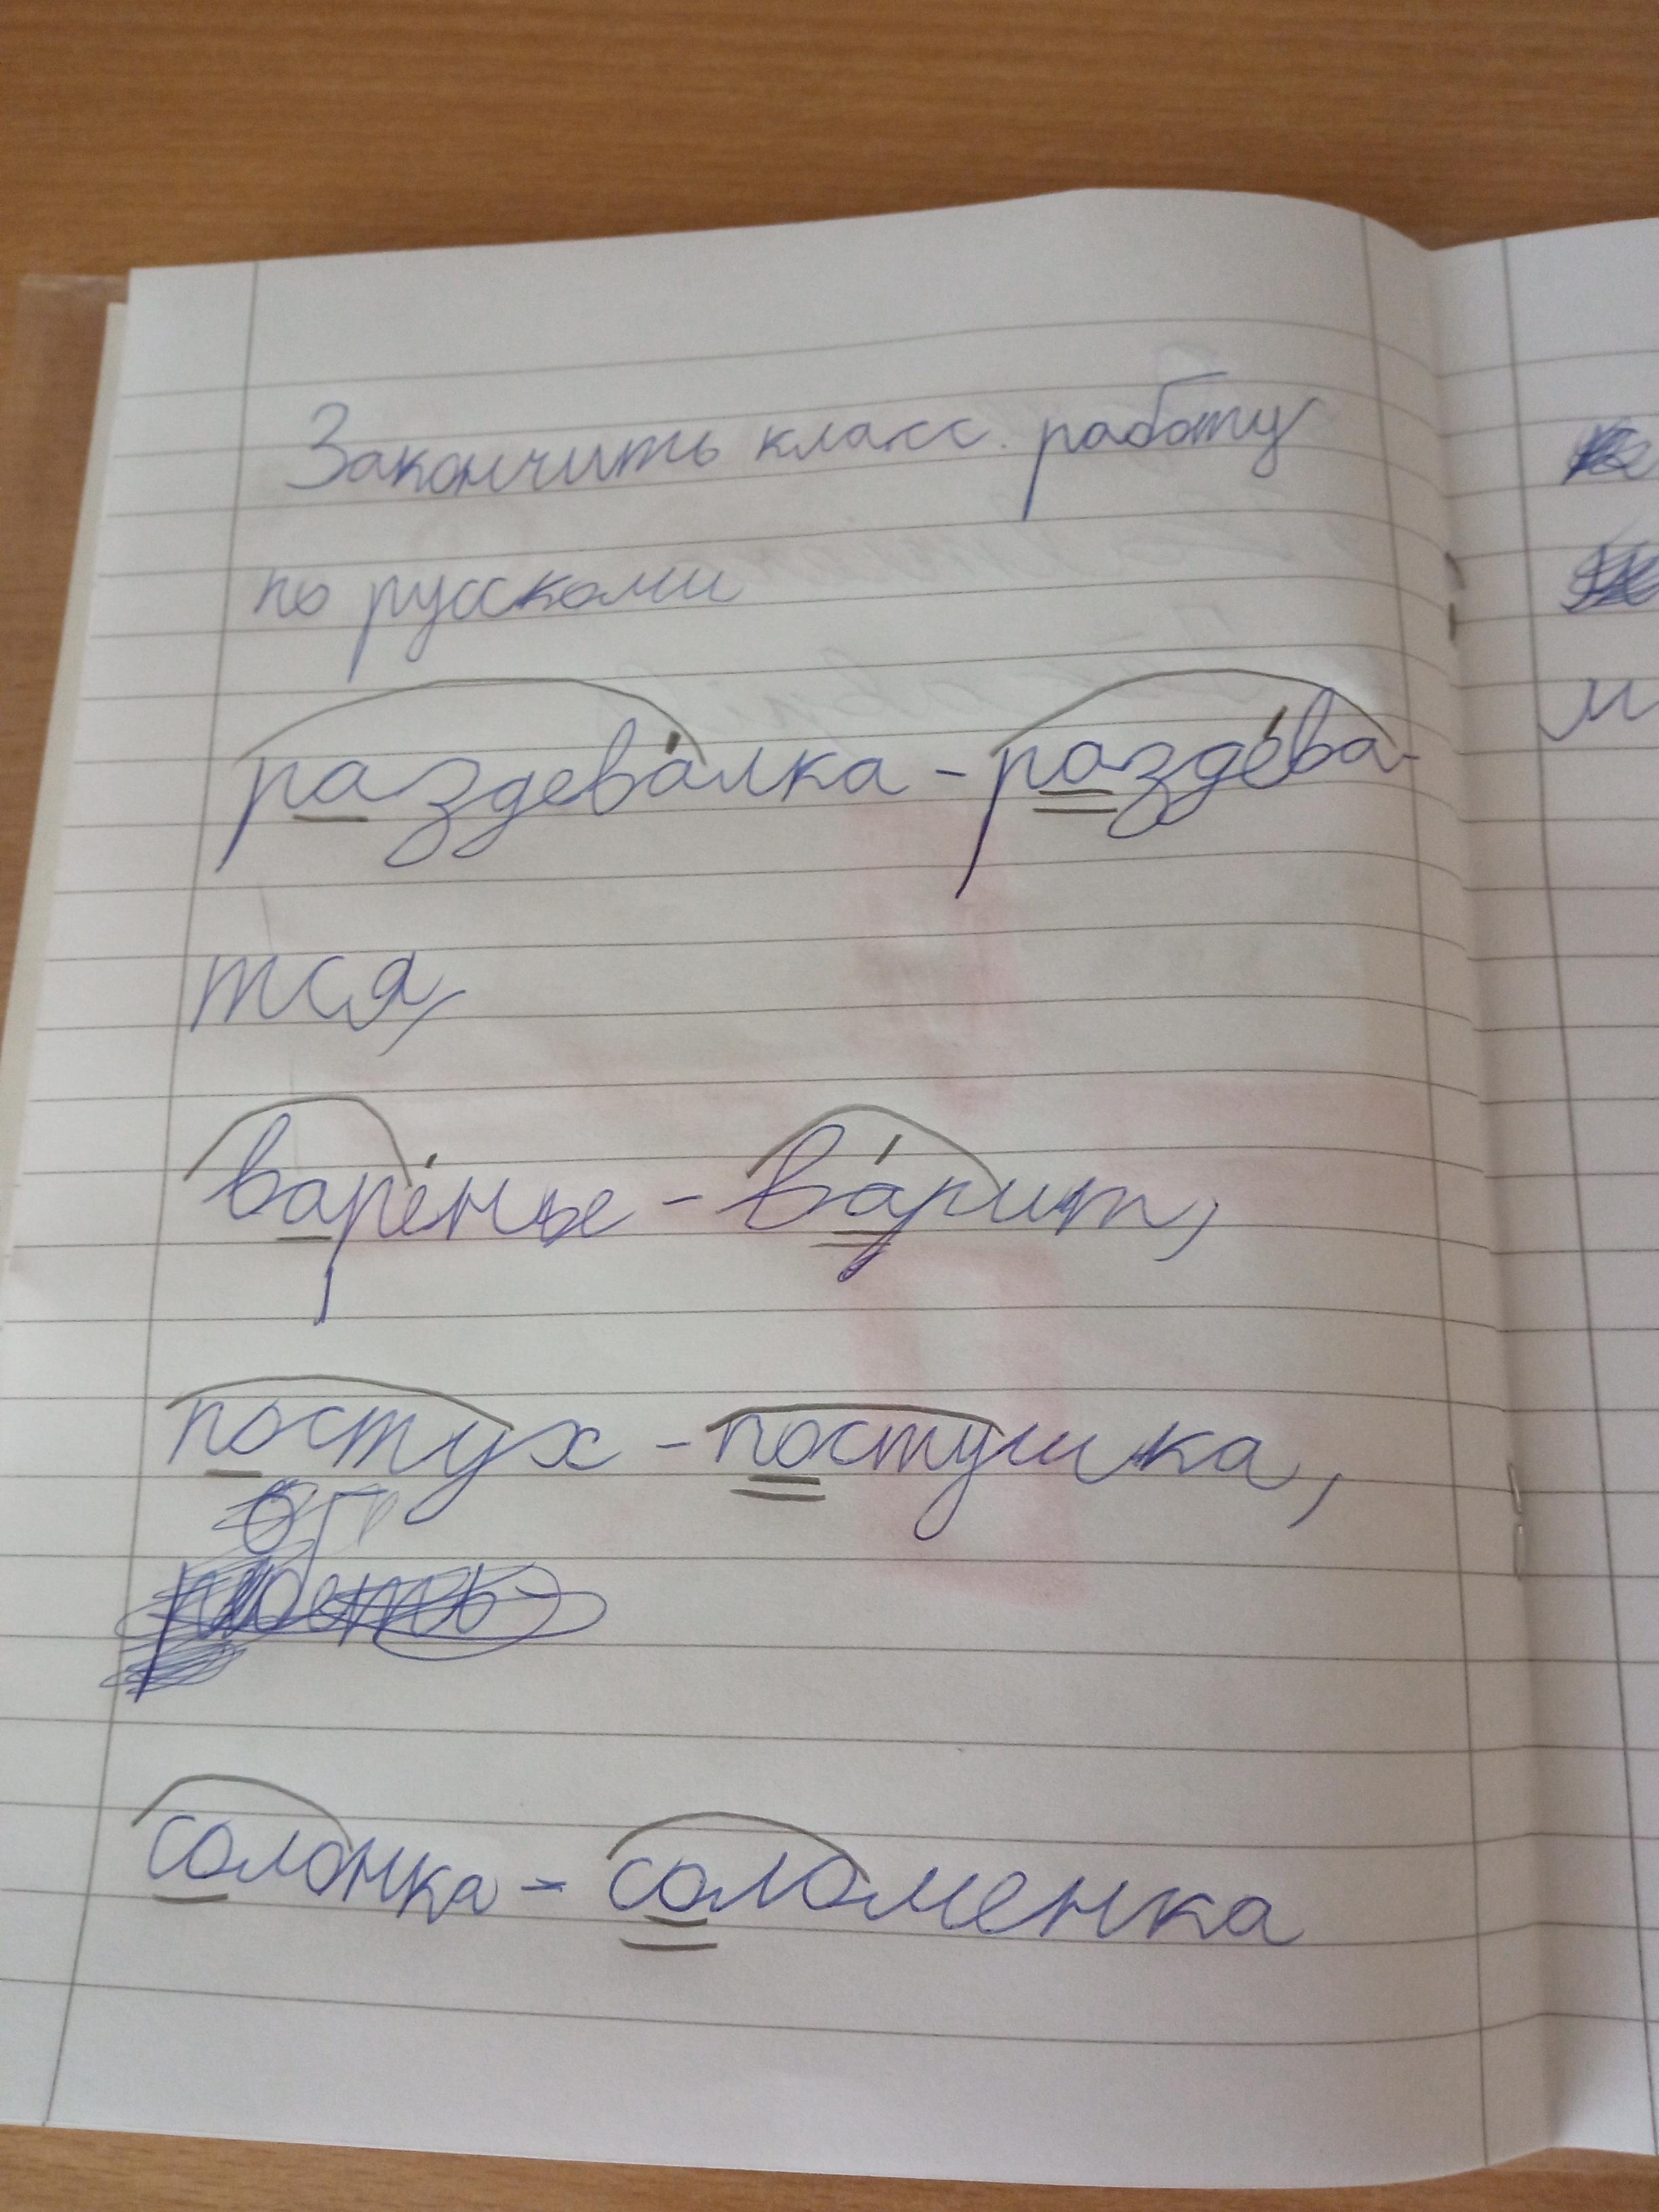 Закончить класс. работу
по русскоми
раздева́лка - разде́ва-
тся,
варе́нье - ва́рит,
постух - постушка,
солонка - соломенка